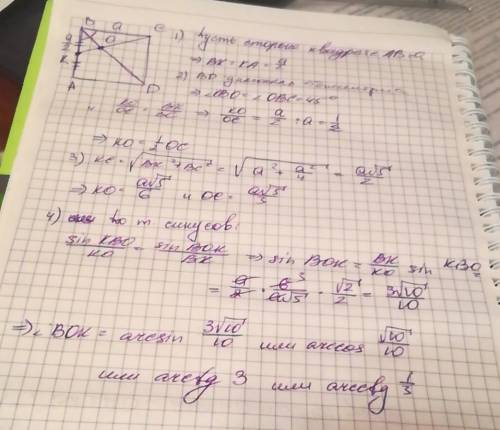 B a C
O
a/2
K
A D
1) Пусть сторона квадрата AB=a
⇒ BK = KA = a/2
2) BD
⇒ ∠KBO = ∠OBC = 45°
и KO/OC = BK/BC ⇒ KO/OC = a/2 : a = 1/2
⇒ KO = 1/2 OC
3) KC = √(BK²+BC²) = √(a² + a²/4) = a√5/2
⇒ KO = a√5/6 и OC = a√5/3
4) по т синусов:
sin KBO/KO = sin BOK/BK ⇒ sin BOK = BK/KO sin KBO
= a/2 · 6/a√5 · √2/2 = 3√10/10
⇒ ∠BOK = arcsin 3√10/10 или arccos √10/10
или arctg 3 или arcctg 1/3